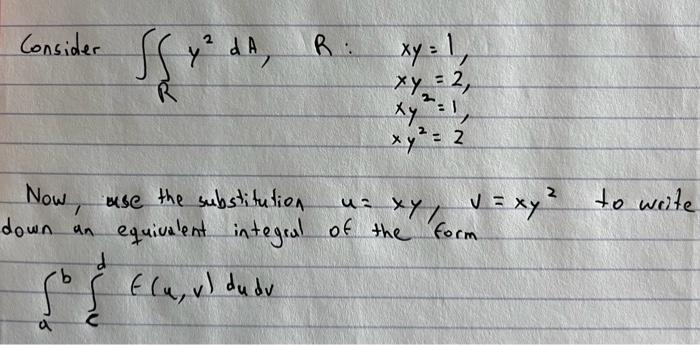 Consider ∫∫_R y² dA, R: xy = 1,
xy = 2,
xy² = 1,
xy² = 2
Now, use the substitution u = xy, v = xy² to write
down an equivalent integral of the form
∫_a^b ∫_c^d f(u,v) du dv